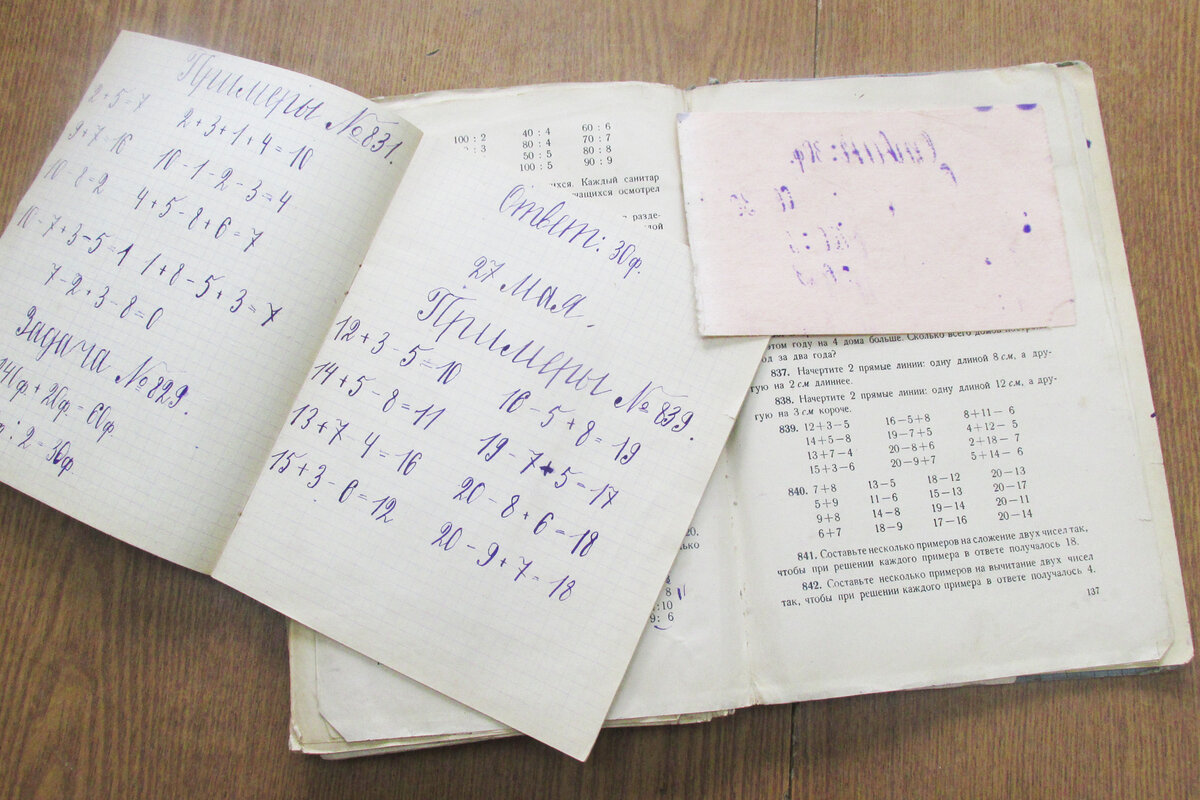 Примеры № 831.
2+5=7
9+7=16
10-8=2
10-7+3-5=1
2+3+1+4=10
10-1-2-3=4
4+5-8+6=7
1+8-5+3=7
7-2+3-8=0
Задача № 829.
: 2=30ф.
Ответ: 30ф.
27 мая.
Примеры № 839.
12+3-5=10
14+5-8=11
13+7-4=16
15+3-6=12
16-5+8=19
19-7+5=17
20-8+6=18
20-9+7=18
100 : 2 40 : 4 60 : 6
: 3 80 : 4 70 : 7
50 : 5 80 : 8
100 : 5 90 : 9
Каждый санитар
осмотрел
разде-
8
:10
9: 6
этом году на 4 дома больше. Сколько всего домов
за два года?
837. Начертите 2 прямые линии: одну длиной 8 см, а дру-
гую на 2 см длиннее.
838. Начертите 2 прямые линии: одну длиной 12 см, а дру-
гую на 3 см короче.
839. 12+3−5 16−5+8 8+11−6
14+5−8 19−7+5 4+12−5
13+7−4 20−8+6 2+18−7
15+3−6 20−9+7 5+14−6
840. 7+8 13−5 18−12 20−13
5+9 11−6 15−13 20−17
9+8 14−8 19−14 20−11
6+7 18−9 17−16 20−14
841. Составьте несколько примеров на сложение двух чисел так,
чтобы при решении каждого примера в ответе получалось 18.
842. Составьте несколько примеров на вычитание двух чисел
так, чтобы при решении каждого примера в ответе получалось 4.
137